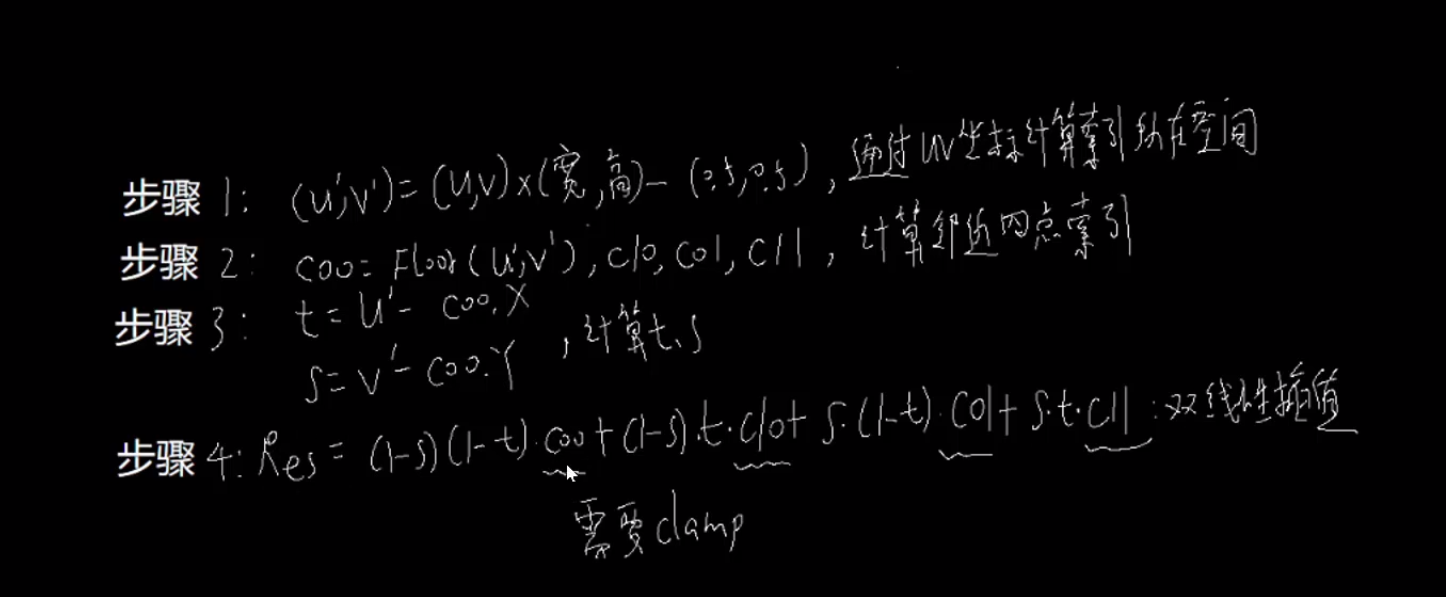 步骤1: (U',V')=(U,V)×(宽,高)-(0.5,0.5), 通过UV坐标计算索引所在空间
步骤2: C00=Floor(U',V'), C10, C01, C11, 计算邻近四点索引
步骤3: t=U'-C00.X
S=V'-C00.Y, 计算t、S
步骤4: Res=(1-S)(1-t)·C00+(1-S)·t·C10+S·(1-t)·C01+S·t·C11:双线性插值
需要clamp